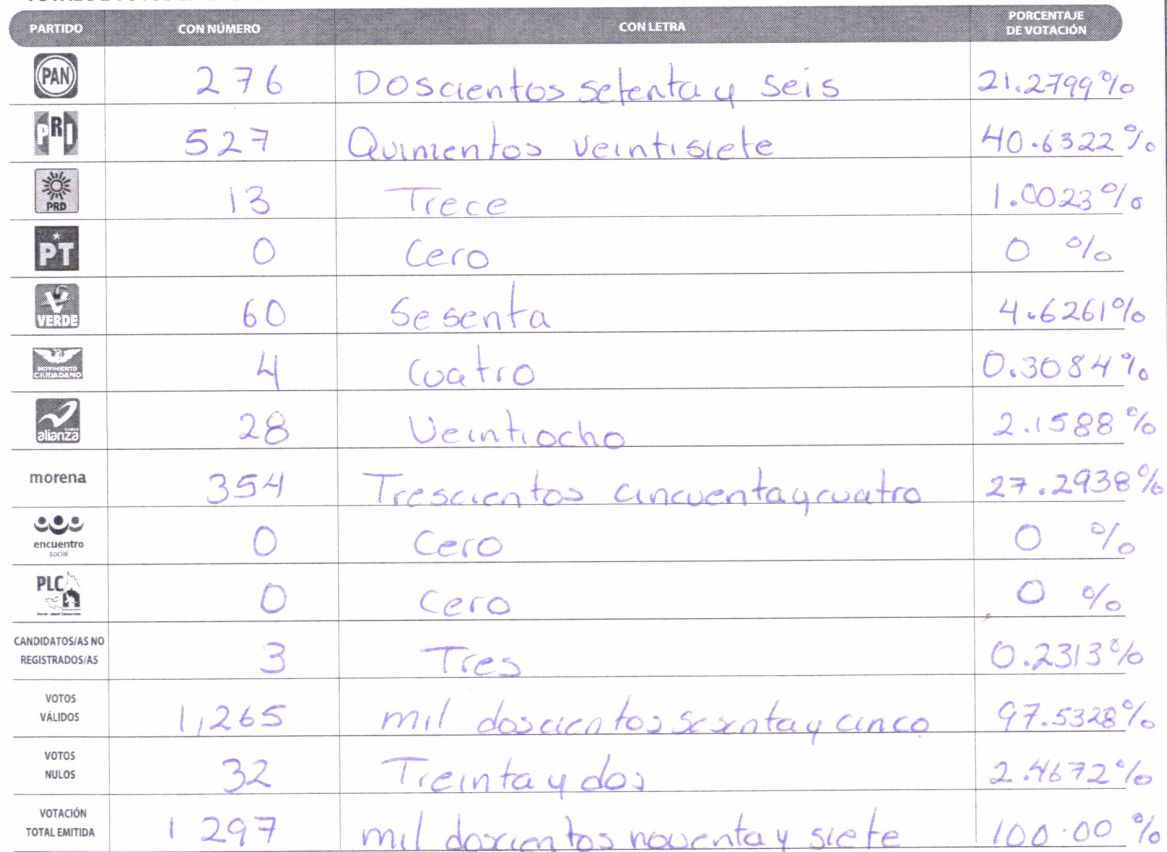 PARTIDO CON NÚMERO CON LETRA PORCENTAJE DE VOTACIÓN
PAN 276 Doscientos setenta y seis 21.2799%
PRI 527 Quinientos veintisiete 40.6322%
PRD 13 Trece 1.0023%
PT 0 Cero 0 %
VERDE 60 Sesenta 4.6261%
MOVIMIENTO CIUDADANO 4 Cuatro 0.3084%
alianza 28 Veintiocho 2.1588%
morena 354 Trescientos cincuenta y cuatro 27.2938%
encuentro social 0 Cero 0 %
PLC 0 Cero 0 %
CANDIDATOS/AS NO REGISTRADOS/AS 3 Tres 0.2313%
VOTOS VÁLIDOS 1,265 mil doscientos sesenta y cinco 97.5328%
VOTOS NULOS 32 Treinta y dos 2.4672%
VOTACIÓN TOTAL EMITIDA 1 297 mil doscientos noventa y siete 100.00 %